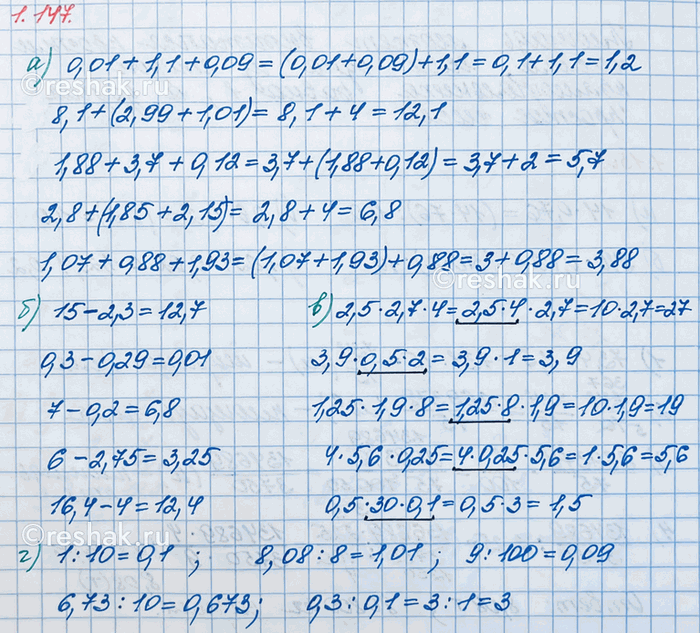 1.147.
а) 0,01+1,1+0,09=(0,01+0,09)+1,1=0,1+1,1=1,2
8,1+(2,99+1,01)=8,1+4=12,1
1,88+3,7+0,12=3,7+(1,88+0,12)=3,7+2=5,7
2,8+(1,85+2,15)=2,8+4=6,8
1,07+0,88+1,93=(1,07+1,93)+0,88=3+0,88=3,88
б) 15-2,3=12,7
0,3-0,29=0,01
7-0,2=6,8
6-2,75=3,25
16,4-4=12,4
в) 2,5·2,7·4=2,5·4·2,7=10·2,7=27
3,9·0,5·2=3,9·1=3,9
1,25·1,9·8=1,25·8·1,9=10·1,9=19
4·5,6·0,25=4·0,25·5,6=1·5,6=5,6
0,5·30·0,1=0,5·3=1,5
г) 1:10=0,1 ; 8,08:8=1,01 ; 9:100=0,09
6,73:10=0,673; 0,3:0,1=3:1=3
©reshak.ru